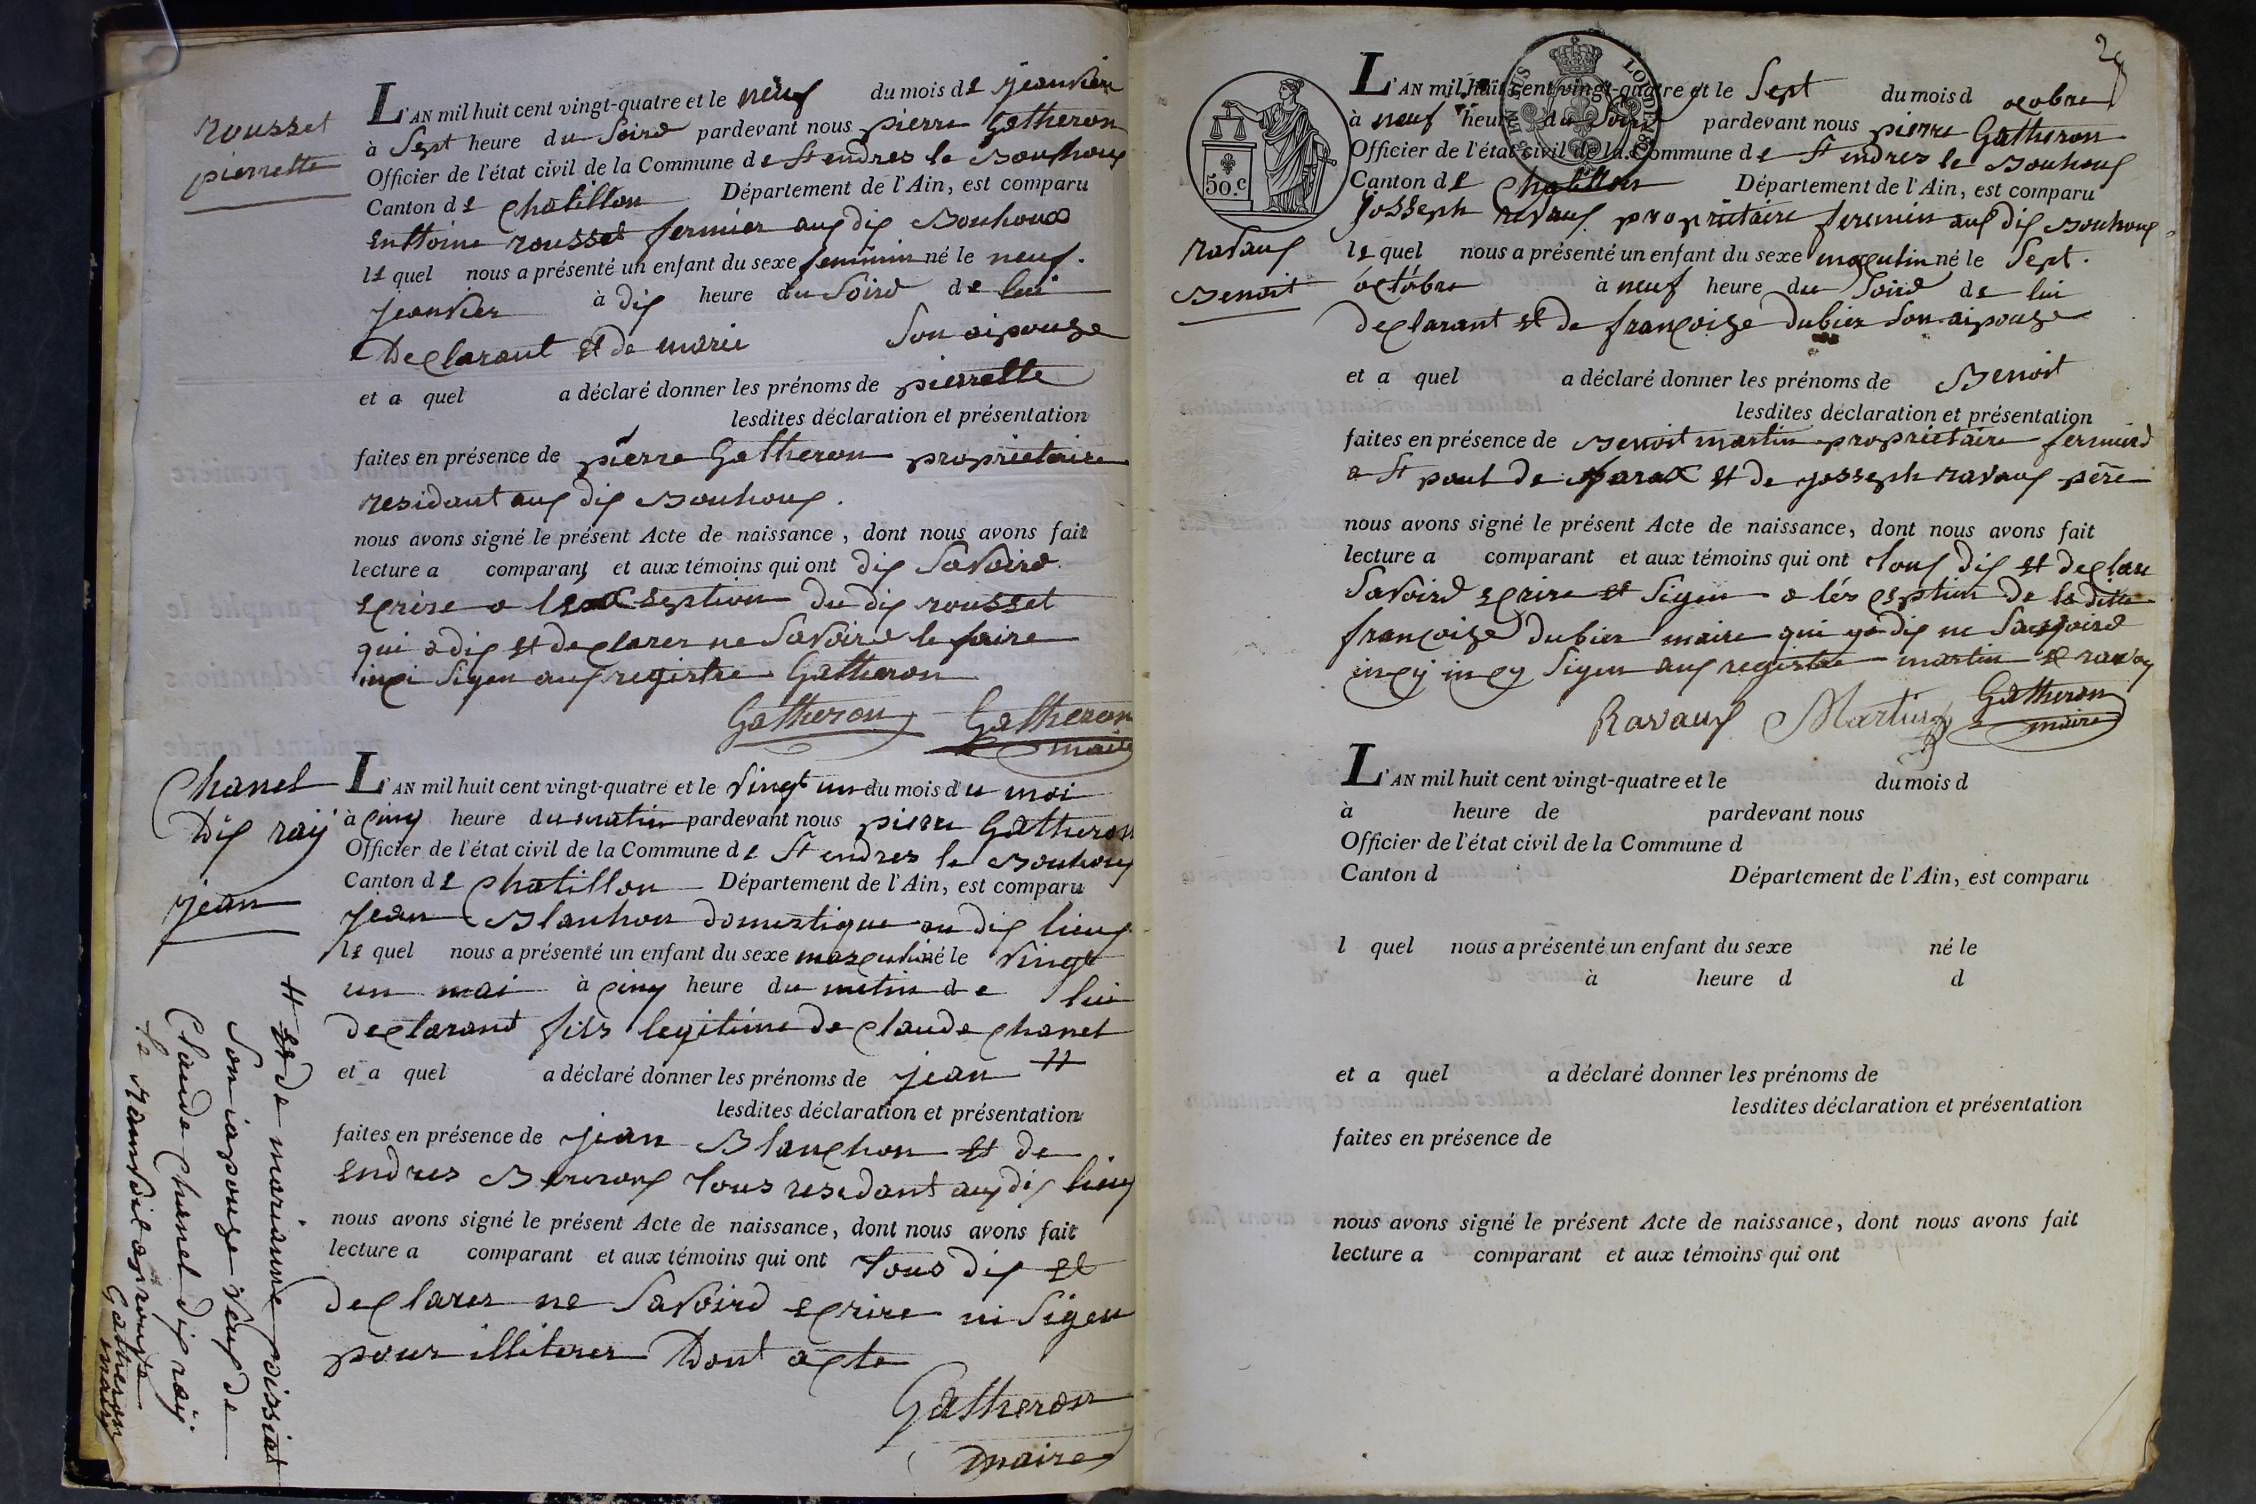 rousset
pierrette
L'AN mil huit cent vingt-quatre et le neuf du mois de jeanvier
à Sept heure du Soird pardevant nous pierre Gatheron
Officier de l'état civil de la Commune de St endres le Bouhoux
Canton de Chatillon Département de l'Ain, est comparu
enttoine rousset fermier aux dix Bouhoux
le quel nous a présenté un enfant du sexe feminin né le neuf
jeanvier à dix heure du Soird de lui
declarant et de marie Son aipouze
et a quel a déclaré donner les prénoms de pierrette
lesdites déclaration et présentation
faites en présence de pierre Gatheron proprietaire
residant aux dix Bouhoux.
nous avons signé le présent Acte de naissance, dont nous avons fait
lecture a comparant et aux témoins qui ont dix Savoird
ecrire a septtion du dix rousset
qui a dix et declarer ne Savoird le faire
Sigen aux registre Gatheron
Gatheron Gatheron
maire
Chanel
Dix raij
jean
L'AN mil huit cent vingt-quatre et le vingt un du mois du mai
à cinq heure du matin pardevant nous pierre Gatheron
Officier de l'état civil de la Commune de St endres le Bouhoux
Canton de Chatillon Département de l'Ain, est comparu
jean Blanchon domestique au dix lieux
le quel nous a présenté un enfant du sexe masculin né le vingt
un mai à cinq heure du matin de lui
declarant fils legitime de claude chanel
et a quel a déclaré donner les prénoms de jean #
lesdites déclaration et présentation
faites en présence de jean Blanchon et de
endres tous residant aux dix lieux
nous avons signé le présent Acte de naissance, dont nous avons fait
lecture a comparant et aux témoins qui ont tous dix et
declarer ne Savoird ecrire ni Sigen
pour illiterer Dont acte
Gatheron
maire
# et de marianne poissiat
Son iapouze veux de
Claude Chanel dix raij
Gatheron
maire
29
50.c
L'AN mil huit cent vingt-quatre et le Sept du mois d octobre
à neuf heure du Soird pardevant nous pierre Gatheron
Officier de l'état civil de la Commune de St endres le Bouhoux
Canton de Chatillon Département de l'Ain, est comparu
josseph ravaux propriitaire feremin aux dix Bouhoux
ravaux
Benoit
le quel nous a présenté un enfant du sexe masculin né le Sept
octobre à neuf heure du Soird de lui
declarant et de françoize dubier Son aipouze
et a quel a déclaré donner les prénoms de Benoit
lesdites déclaration et présentation
faites en présence de Benoit martin proprietaire fermierd
a St paul de varax et de josseph ravaux père
nous avons signé le présent Acte de naissance, dont nous avons fait
lecture a comparant et aux témoins qui ont tous dix et declare
Savoird ecrire et Sigen a de la ditte
françoize dubier maire qui ya dix ne Savoird
Sigen aux registre martin et ravaux
Ravaux Martin Gatheron
maire
L'AN mil huit cent vingt-quatre et le du mois d
à heure de pardevant nous
Officier de l'état civil de la Commune d
Canton d Département de l'Ain, est comparu
l quel nous a présenté un enfant du sexe né le
à heure d d
et a quel a déclaré donner les prénoms de
lesdites déclaration et présentation
faites en présence de
nous avons signé le présent Acte de naissance, dont nous avons fait
lecture a comparant et aux témoins qui ont